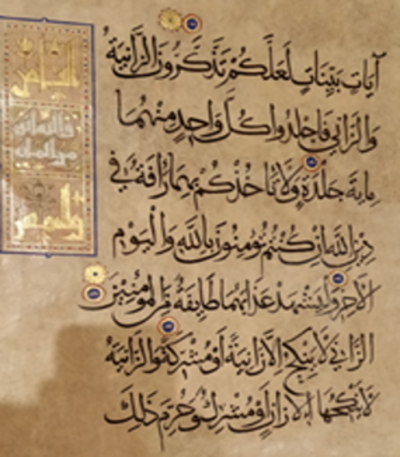 آيَاتٍ بَيِّنَاتٍ لَعَلَّكُمْ تَذَكَّرُونَ الزَّانِيَةُ
وَالزَّانِي فَاجْلِدُوا كُلَّ وَاحِدٍ مِنْهُمَا
مِايَةَ جَلْدَةٍ وَلَا تَاخُذْكُمْ بِهِمَا رَافَةٌ فِي
دِينِ اللَّهِ اِنْ كُنْتُمْ تُؤْمِنُونَ بِاللَّهِ وَالْيَوْمِ
الْآخِرِ وَلْيَشْهَدْ عَذَابَهُمَا طَايِفَةٌ مِنَ الْمُؤْمِنِينَ
الزَّانِي لَا يَنْكِحُ اِلَّا زَانِيَةً اَوْ مُشْرِكَةً وَالزَّانِيَةُ
لَا يَنْكِحُهَا اِلَّا زَانٍ اَوْ مُشْرِكٌ وَحُرِّمَ ذَلِكَ